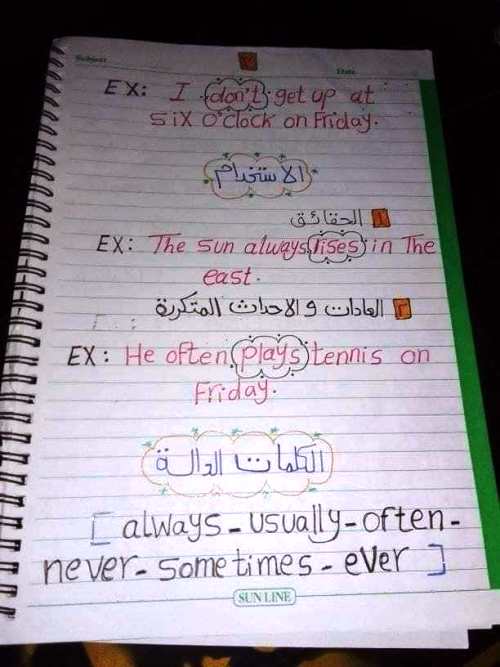 Subject
٢
Date
EX: I don't get up at
six o'clock on Friday.
الاستخدام
١ الحقائق
EX: The sun always rises in The
east.
٢ العادات والاحداث المتكررة
EX: He often plays tennis on
Friday.
الكلمات الدالة
[always-usually-often-
never-sometimes-ever]
SUN LINE